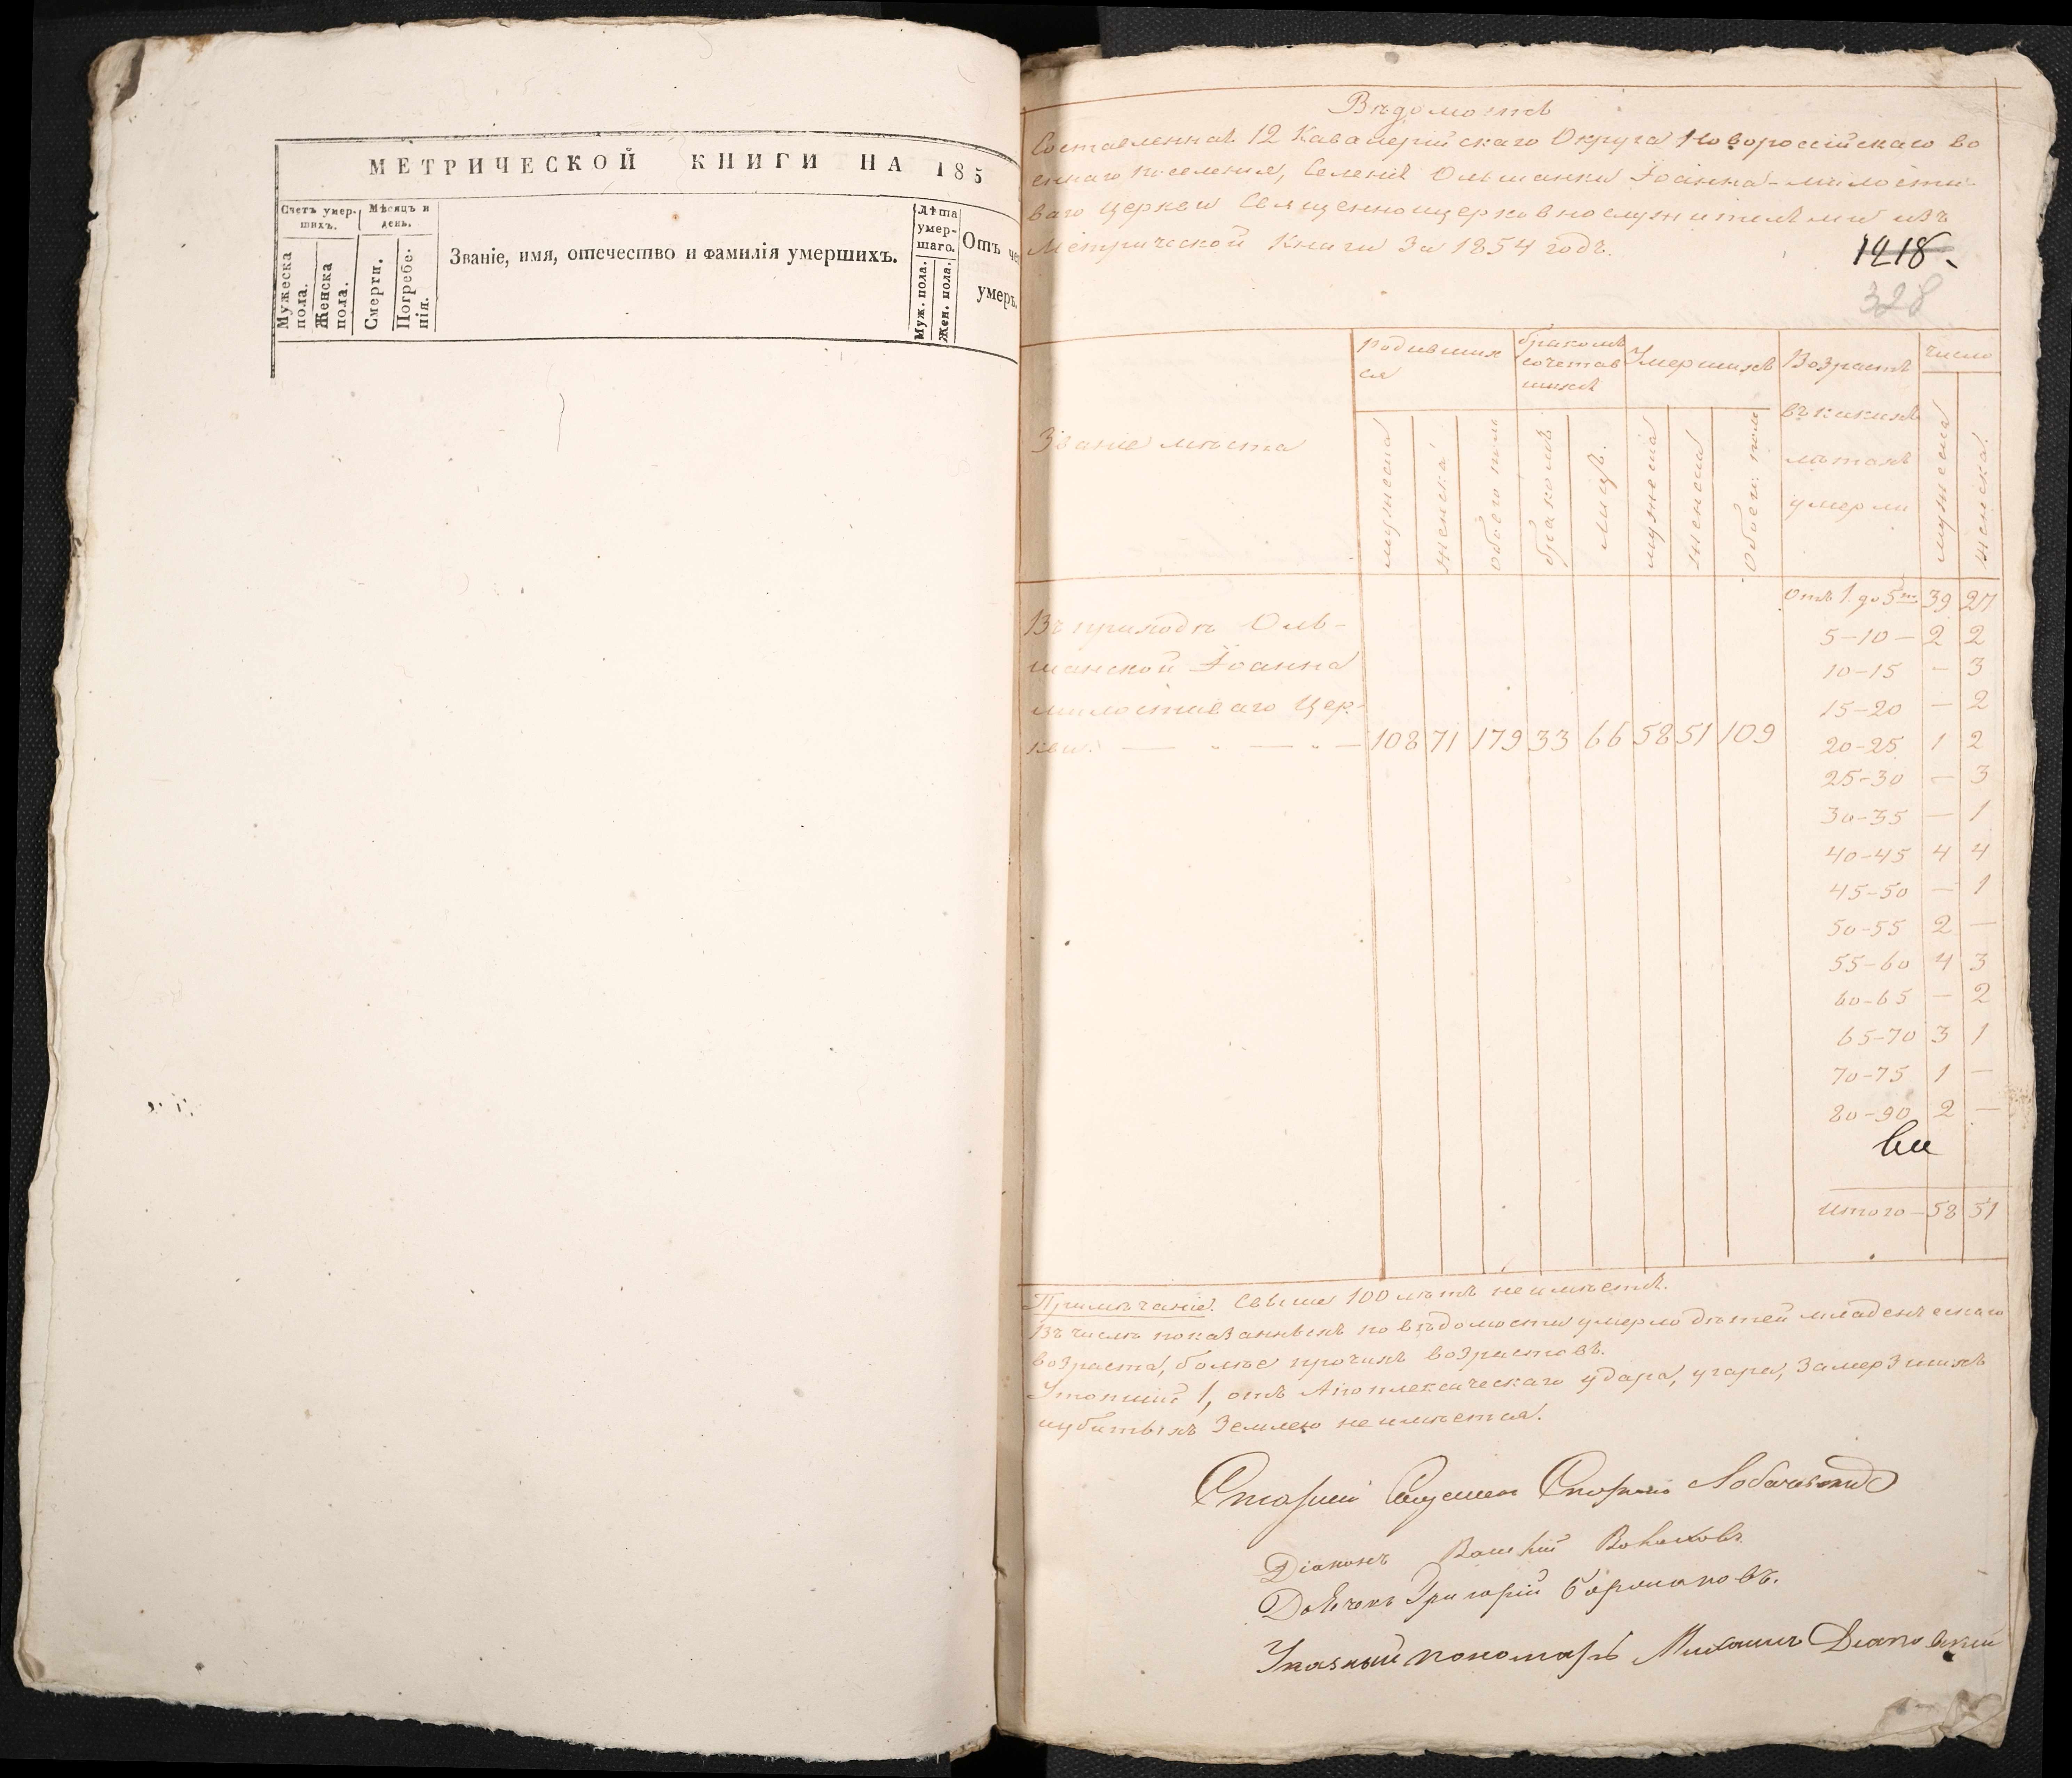 МЕТРИЧЕСКОЙ КНИГИ НА 185
Счетъ умер-
шихъ.
Мѣсяцъ и
день.
Мужеска
пола.
Женска
пола.
Смерти.
Погребе-
нія.
Званіе, имя, отечество и фамилія умершихъ.
Лѣта
умер-
шаго.
Муж. пола.
Жен. пола.
Отъ че
умеръ.
Вѣдомость
Составленная 12 Кавалерійскаго Округа Новороссійскаго во
еннаго поселенія, Селенія Ольшанки Іоанна-милости-
ваго Церкви Священноцерковнослужителями изъ
Метрической Книги за 1854 годъ.
1218
328
Званіе мѣста
родивших
ся
бракомъ
сочетав
шихся
Умершихъ
Возрастъ
въ какихъ
лѣтахъ
умерли
число
мужеска
женска
обоего пола
браковъ
лицъ.
мужеска
женска
обоего пола
мужеска
женска.
Отъ 1 до 5ти 39 27
Въ приходѣ Оль-
шанской Іоанна
милостиваго Цер-
кви. — " — " — 108 71 179 33 66 58 51 109
5-10 - 2 2
10-15 - 3
15-20 - 2
20-25 1 2
25-30 - 3
30-35 - 1
40-45 4 4
45-50 - 1
50-55 2 -
55-60 4 3
60-65 - 2
65-70 3 1
70-75 1 -
80-90 2 -
Итого - 58 51
Примѣчаніе. Свыше 100 лѣтъ неимѣется.
Въ числѣ показанныхъ по вѣдомости умерло дѣтей младенческаго
возраста, болѣе прочихъ возрастовъ.
Утопшій 1, отъ Апоплексическаго удара, угара, замерзшихъ
иубитыхъ Землею неимѣется.
Старшій Священ Лобачевскій
Діаконъ Василій
Дьячекъ Григорій
Указный пономарь Михаилъ Діановскій